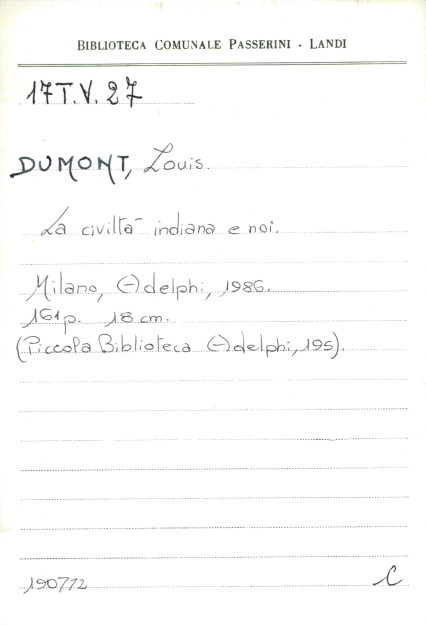 BIBLIOTECA COMUNALE PASSERINI - LANDI
17T.V.27
DUMONT, Louis.
La civiltà indiana e noi.
Milano, Adelphi, 1986.
161p. 18 cm.
(Piccola Biblioteca Adelphi, 195).
190772 C